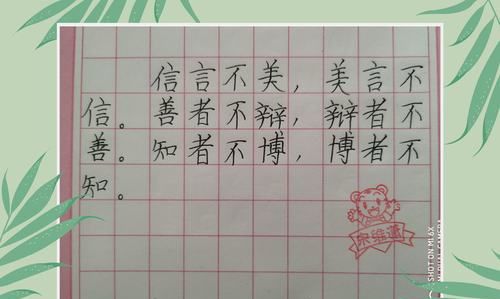 信言不美，美言不
信。善者不辩，辩者不
善。知者不博，博者不
知。
SHOT ON MI 6X